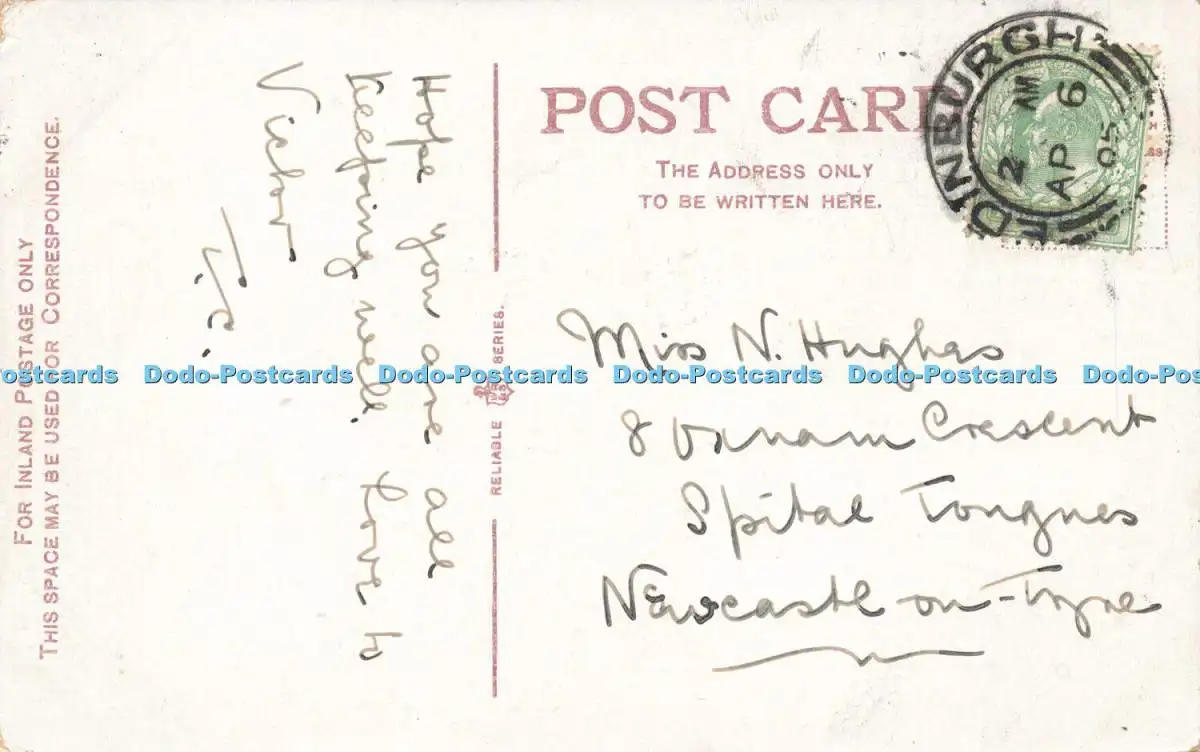 FOR INLAND POSTAGE ONLY
THIS SPACE MAY BE USED FOR CORRESPONDENCE.
Hope you are all
keeping well. Love to
Victor
RELIABLE
SERIES.
POST CARD
THE ADDRESS ONLY
TO BE WRITTEN HERE.
EDINBURGH
2 AM
AP 6
05
Miss N. Hughes
8 Crescent
Spital Tongues
Newcastle-on-Tyne
ostcards Dodo-Postcards Dodo-Postcards Dodo-Postcards Dodo-Postcards Dodo-Pos